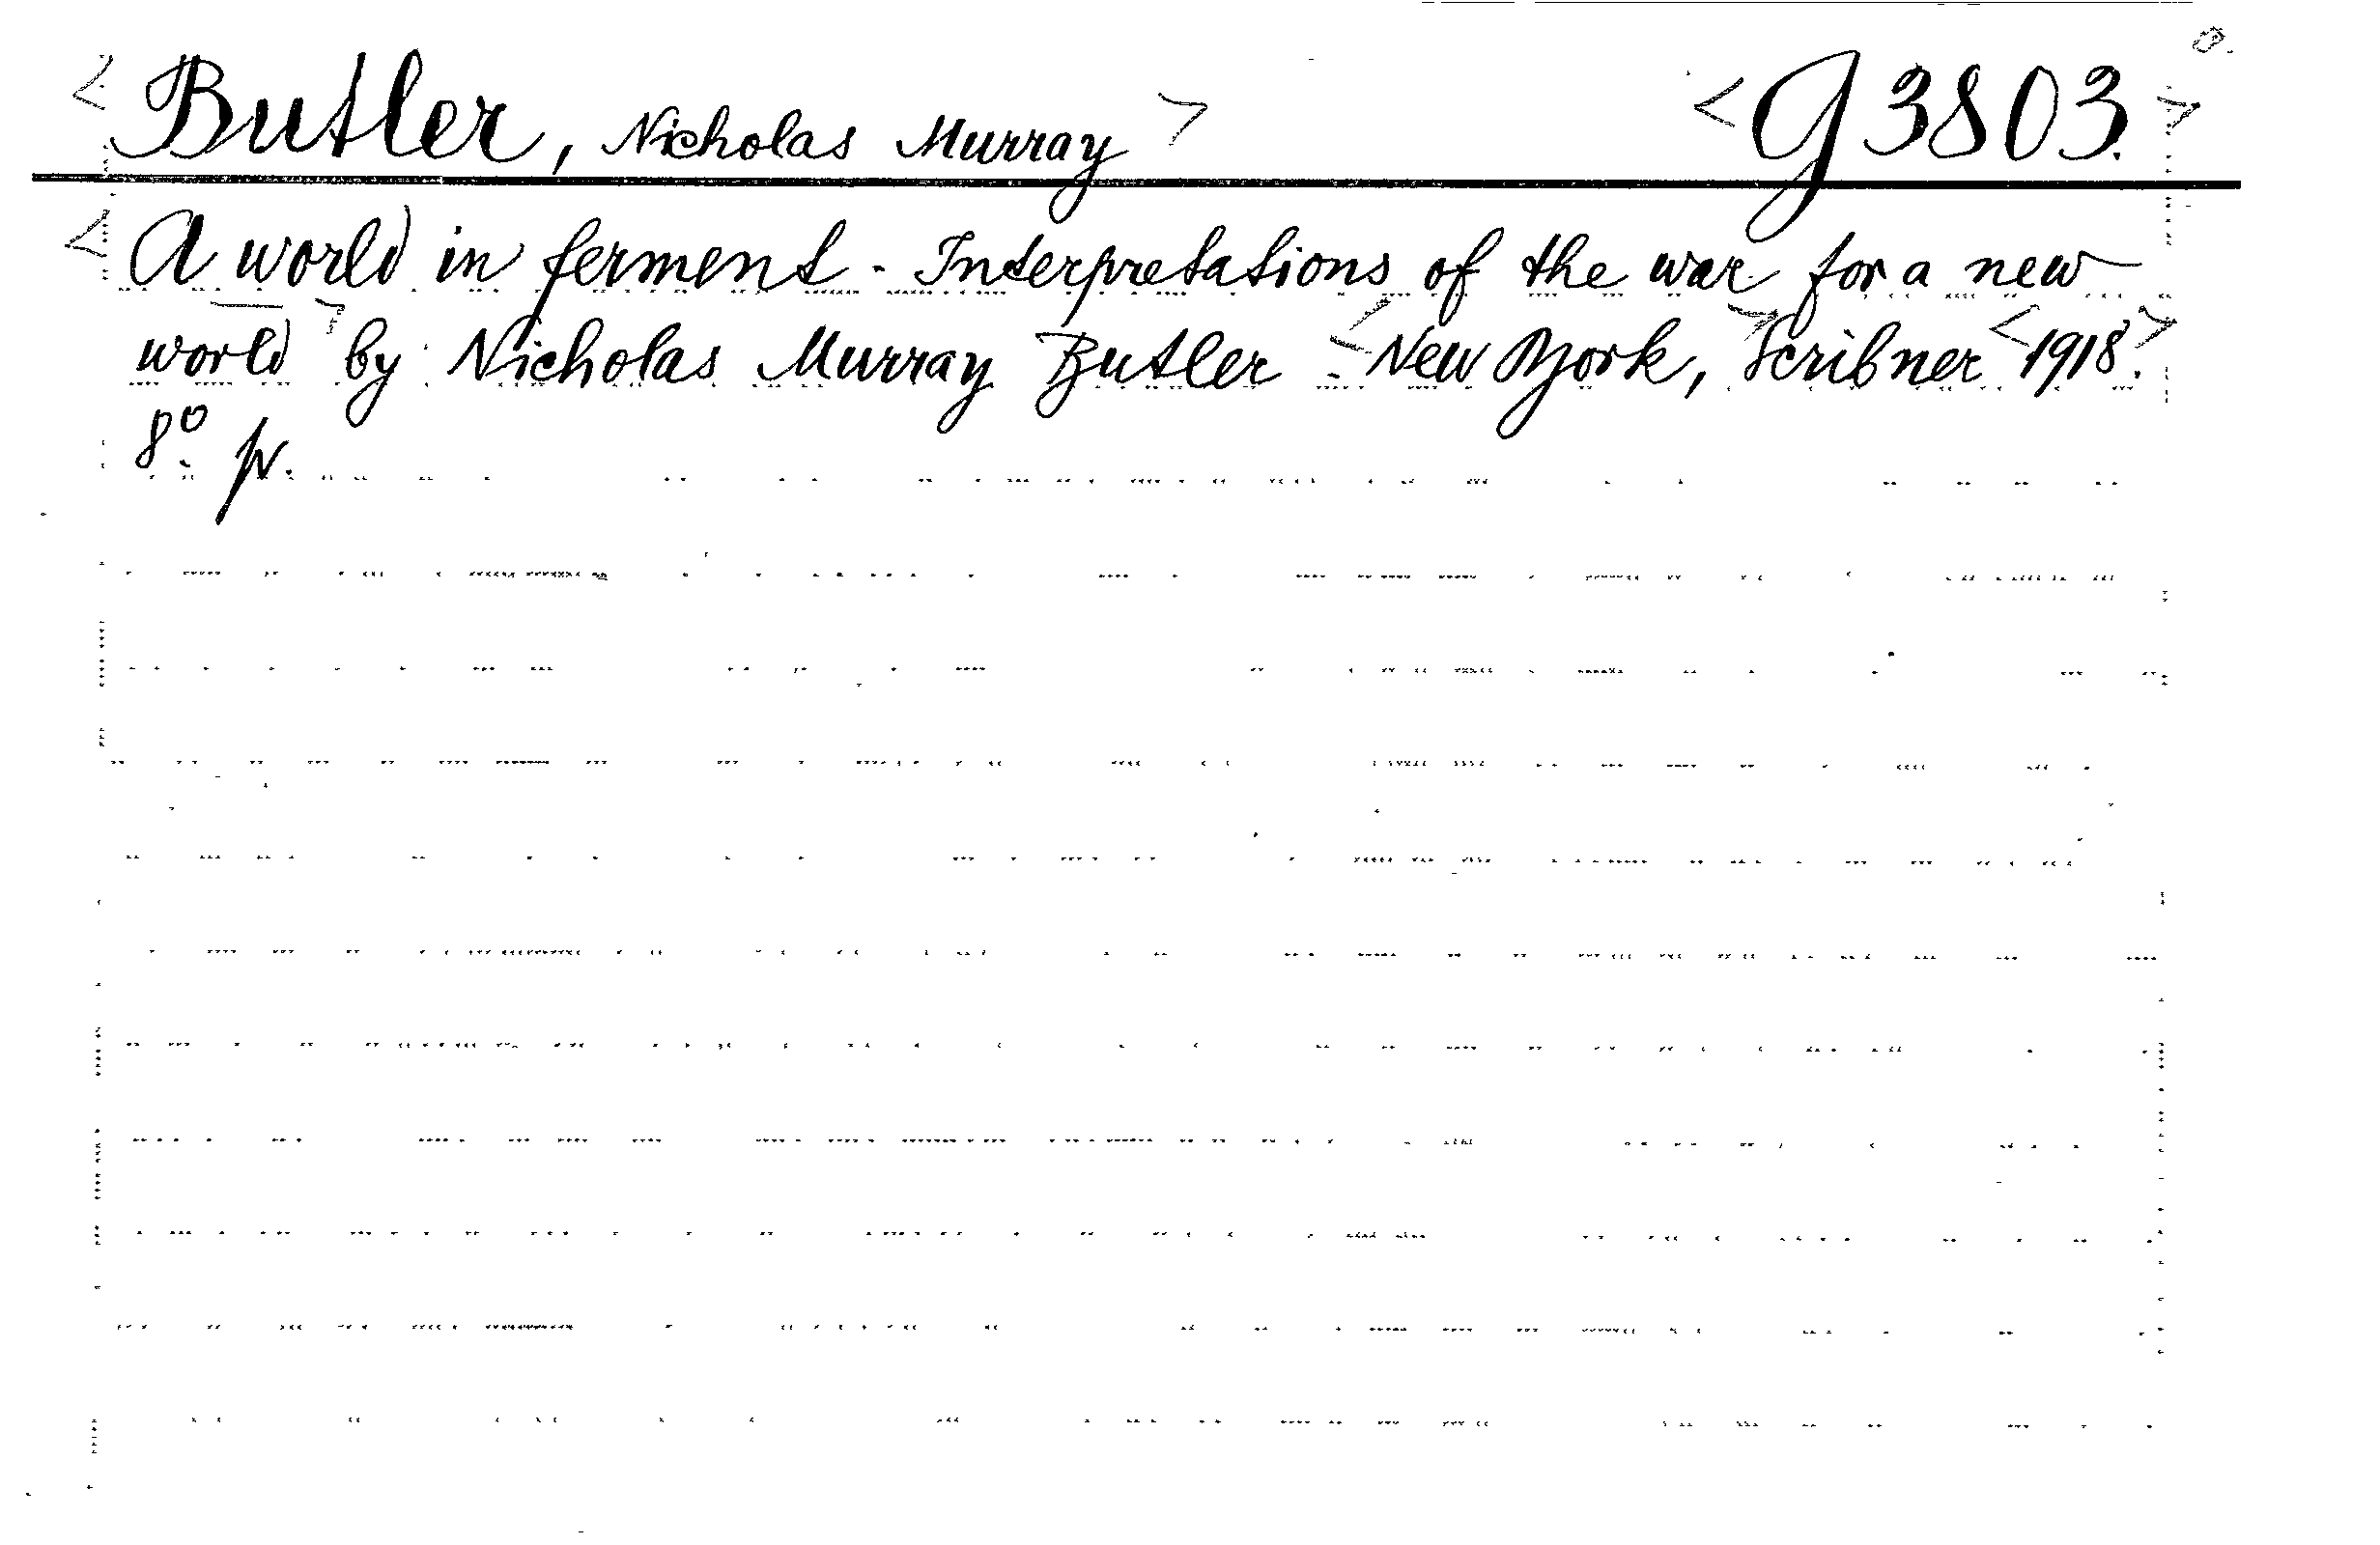 <Butler, Nicholas Murray> <G3803.>
<A world in ferment - Interpretations of the war for a new
world> by Nicholas Murray Butler - <New York, > Scribner <1918>.
8º. p.